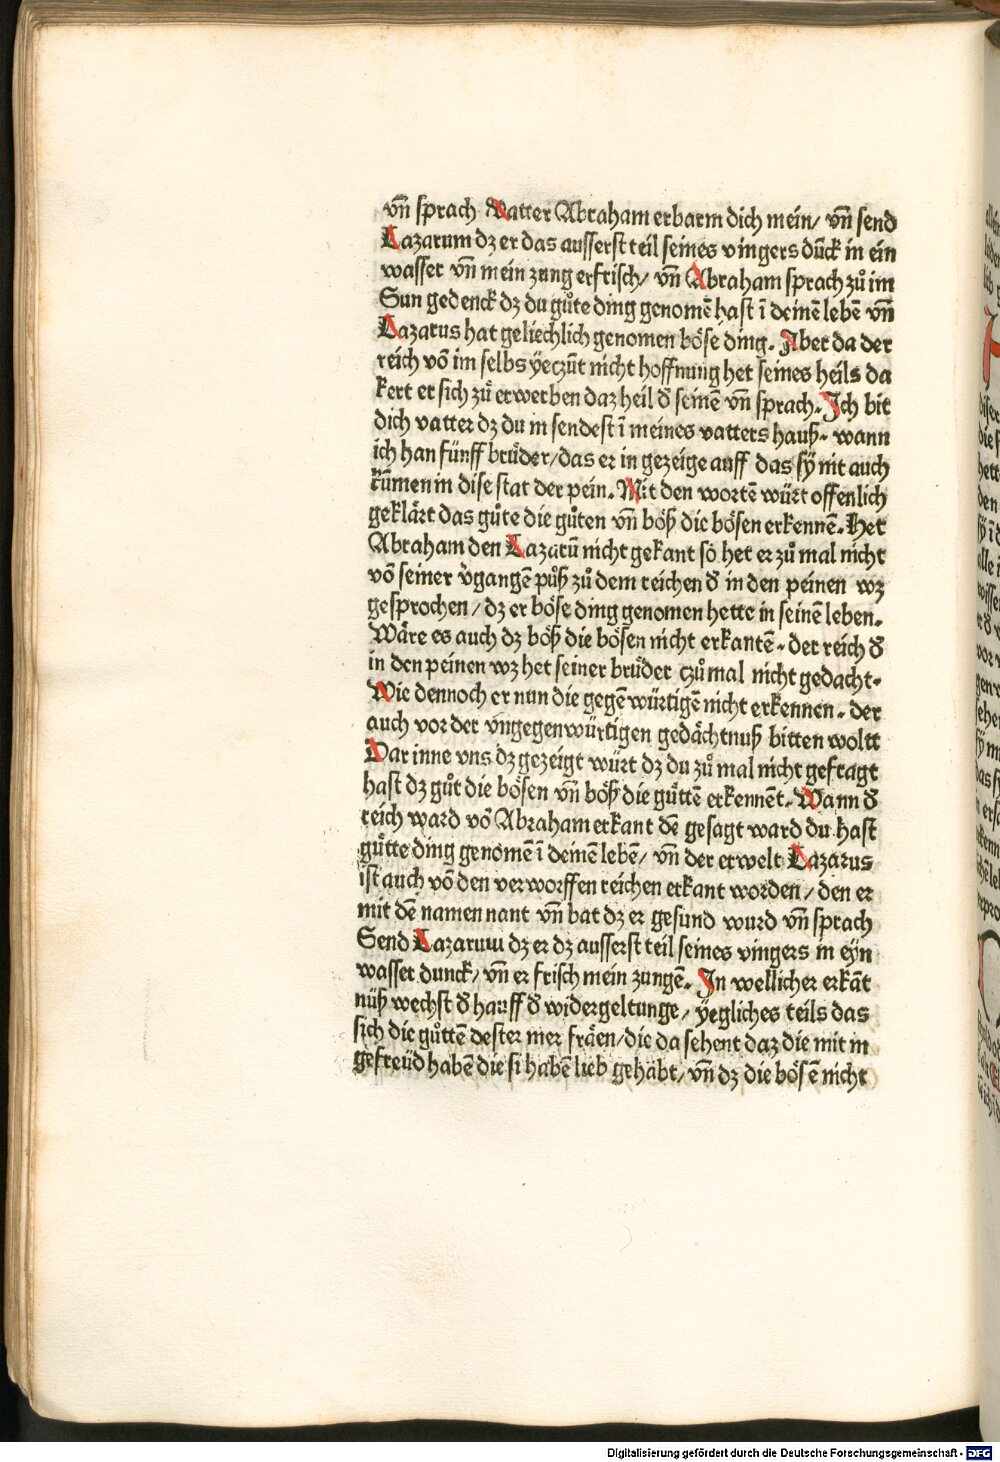 vn̄ sprach Vatter Abraham erbarm dich mein/ vn̄ send
Lazarum dz er das ausserst teil seines vingers dūck in ein
wasser vn̄ mein zung erfrisch/ vn̄ Abraham sprach zů im
Sun gedenck dz du gůte ding genomē hast ī deinē lebē vn̄
Lazarus hat geliechlich genomen böse ding. Aber da der
reich vō im selbs yeczūt nicht hoffnung het seines heils da
kert er sich zů erwerben daz heil đ seinē vn̄ sprach. Ich bit
dich vatter dz du in sendest ī meines vatters hauß. wann
ich han fünff brüder/das er in gezeige auff das sÿ nit auch
kūmen in dise stat der pein. Mit den wortē würt offenlich
geklärt das gůte die gůten vn̄ böß die bösen erkennē. Het
Abraham den Lazarū nicht gekant so het er zů mal nicht
vō seiner v̈gangē půß zů dem reichen đ in den peinen wz
gesprochen/ dz er böse ding genomen hette in seinē leben.
Wäre es auch dz böß die bösen nicht erkantē. der reich đ
in den peinen wz het seiner brüder czů mal nicht gedacht.
Wie dennoch er nun die gegēwürtigē nicht erkennen. der
auch vor der vngegenwürtigen gedächtnuß bitten woltt
Dar inne vns dz gezeigt würt dz du zů mal nicht gefragt
hast dz gůt die bösen vn̄ böß die gůttē erkennēt. Wann đ
reich ward vō Abraham erkant dē gesagt ward du hast
gůtte ding genomē ī deinē lebē/ vn̄ der erwelt Lazarus
ist auch vō den verworffen reichen erkant worden/ den er
mit dē namen nant vn̄ bat dz er gesund wurd vn̄ sprach
Send Lazarum dz er dz ausserst teil seines vingers in eyn
wasser dunck/ vn̄ er frisch mein zungē. In wellicher erkāt
nüß wechst đ hauff đ widergeltunge/ ÿegliches teils das
sich die gůttē dester mer fräen/die da sehent daz die mit in
gefreüd habē die si habē lieb gehabt/ vn̄ dz die bösē nicht
Digitalisierung gefördert durch die Deutsche Forschungsgemeinschaft - DFG